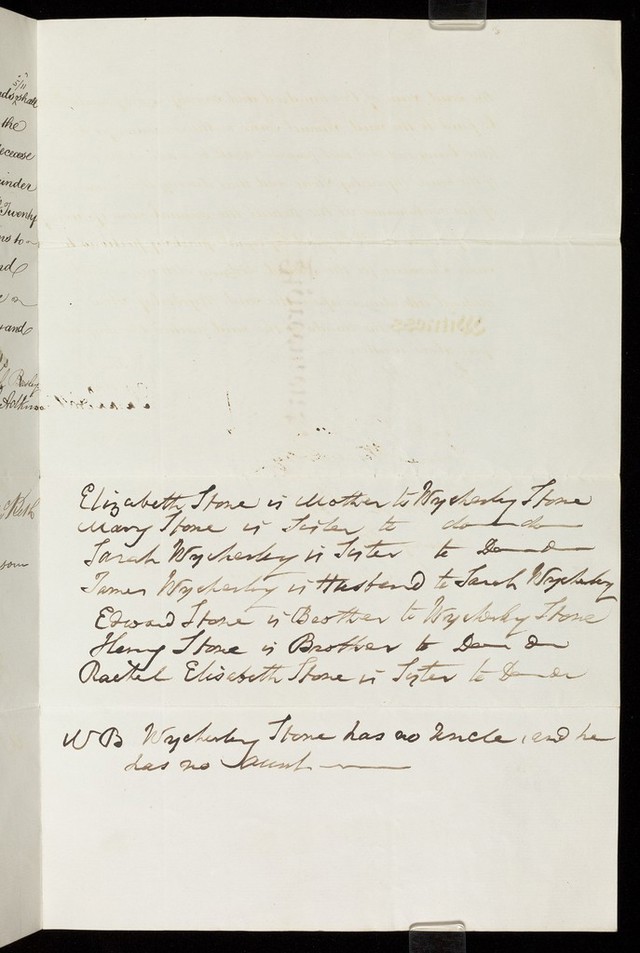 shall
the
decease
Twenty
and
Elizabeth Stone is Mother to Wycherley Stone
Mary Stone is Sister to do — do —
Sarah Wycherley is Sister to Do — Do —
James Wycherley is Husband to Sarah Wycherley
Edward Stone is Brother to Wycherley Stone
Henry Stone is Brother to Do — Do
Rachel Elisabeth Stone is Sister to Do — Do
NB Wycherley Stone has no Uncle, and he
has no Aunt ———
Witness